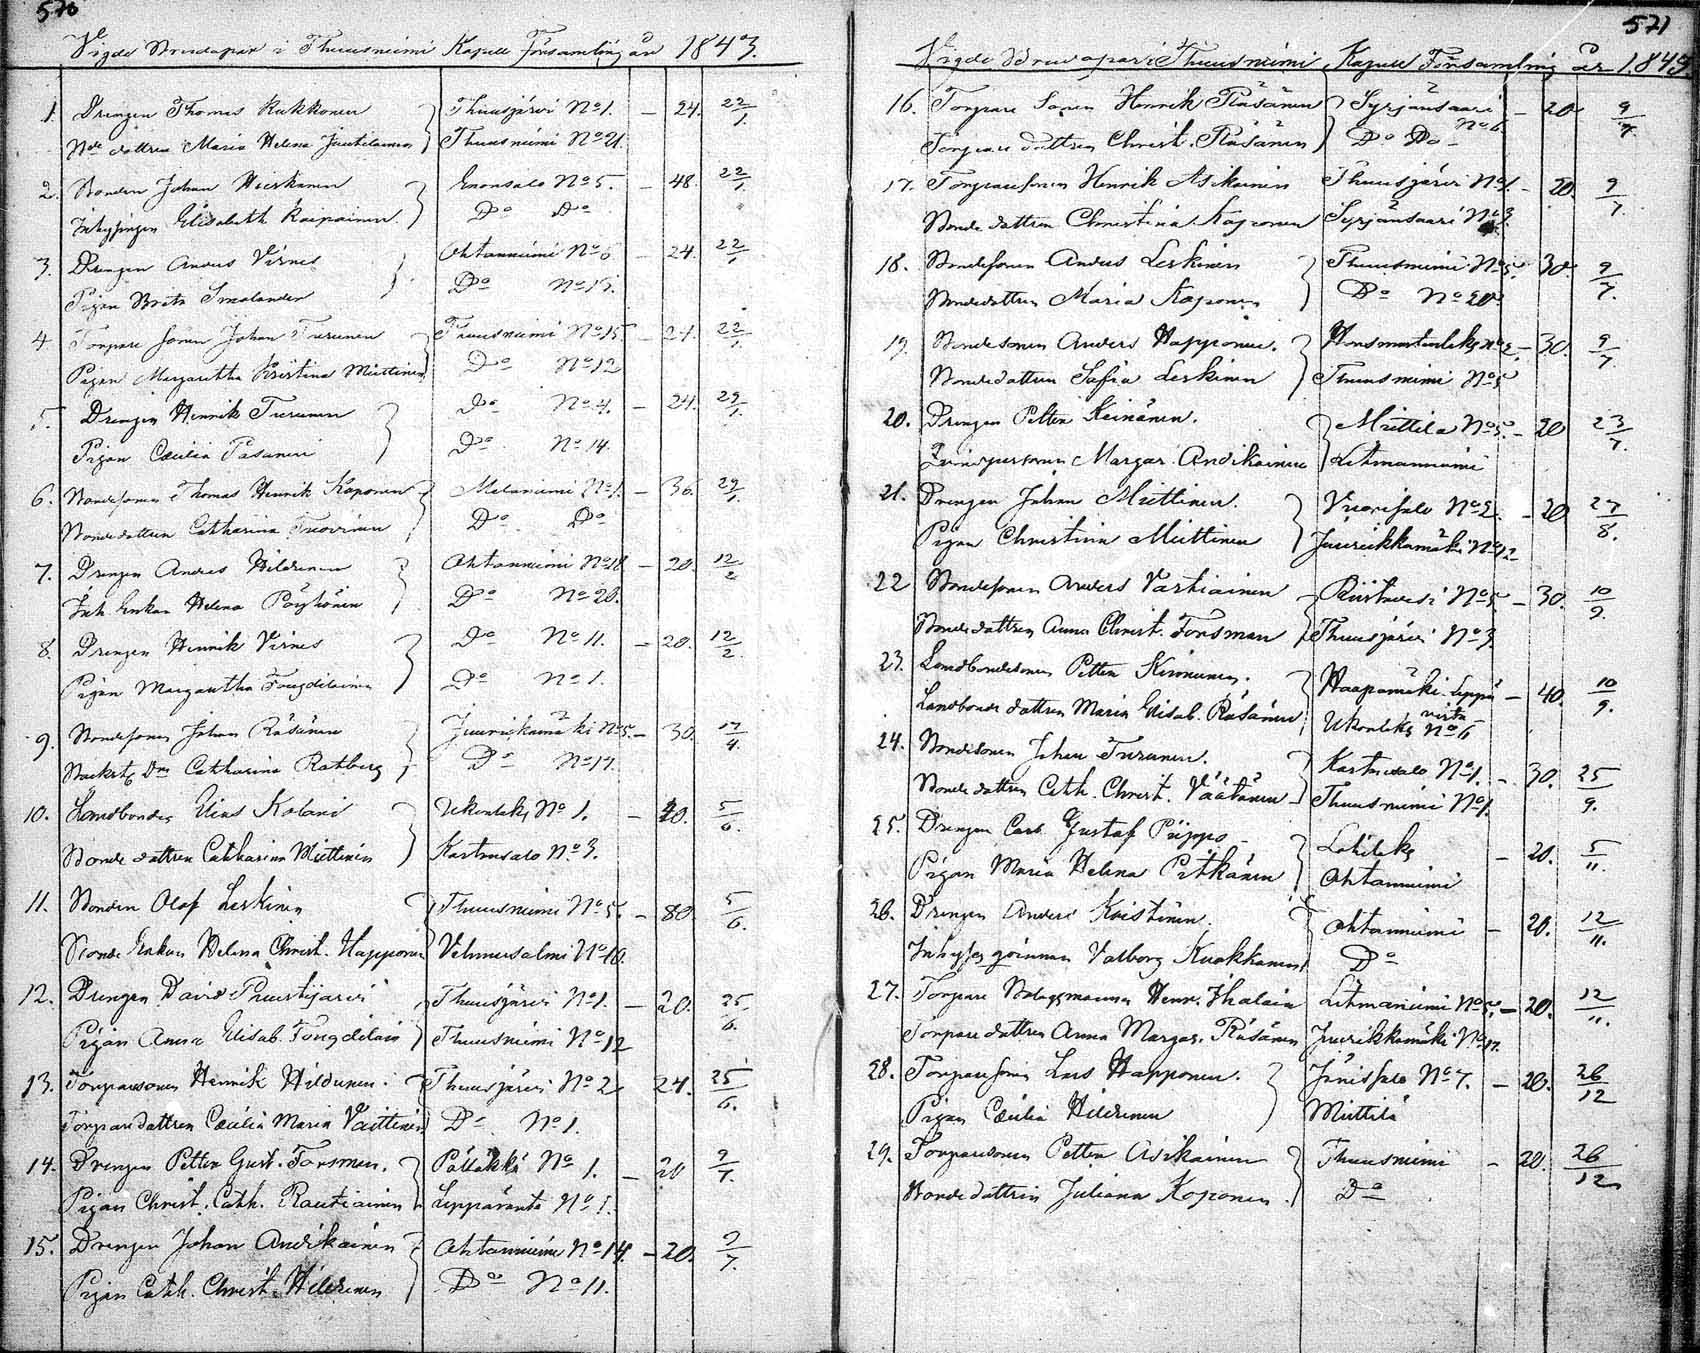 570
Vigde Brudapar i Thuusniemi Kapell Församling år 1843.
1. Drengen Thomas Kukkonen } Thuusjärvi No 1. – 24. 22/1.
Nde dottren Maria Helena Juutilainen Thuusniemi No 21.
2. Bonden Johan Hiiskanen } Enonsalo No 5. – 48. 22/1.
Inhysingen Elisabeth Kaipainen Do Do
3. Drengen Anders Virnes } Ohtanniemi No 6 – 24. 22/1
Pigan Brita Smolander Do No 15.
4 Torpare sonen Johan Turunen Thuusniemi No 15 – 24. 22/1.
Pigan Margaretha Kristina Miettinen Do No 12
5. Drengen Henrik Turunen } Do No 4. – 24. 29/1.
Pigan Cæcilia Pasanen Do No 14.
6. Bondesonen Thomas Henrik Koponen } Melaniemi No 1. – 36. 29/1.
Bondedottren Catharina Tuovinen Do Do
7. Drengen Anders Hildunen } Ohtanniemi No 18 – 20. 12/2
Inh. Enkan Helena Pöyhönen Do No 20.
8. Drengen Henrik Virnes } Do No 11. – 20. 12/2.
Pigan Margaretha Tougdilainen Do No 1.
9. Bondesonen Johan Räsänen } Juurickamäki No 5. – 30. 17/4.
Catharina Rotberg Do No 17.
10. Landbonden Elias Kolari } Ukonleks No 1. – 20. 5/6.
Bonde dottren Catharina Miettinen Kartusalo No 3.
11. Bonden Olof Leskinen } Thuusniemi No 5. – 80. 5/6.
Bonde Enkan Helena Christ. Happonen Vehmersalmi No 10.
12. Drengen David Puustijarvi } Thuusjärvi No 1. – 20. 25/6.
Pigan Anna Elisab. Tougdilain Thuusniemi No 12
13. Torparesonen Henrik Hildunen. } Thuusjärvi No 2 24. 25/6.
Torparedottren Cæcilia Maria Vaittinen Do No 1.
14. Drengen Petter Gust. Forsman. } Pölläkkä No 1. – 20 9/7.
Pigan Christ. Cath. Rautiainen Lepparanta No 1.
15. Drengen Johan Andikainen } Ohtanniemi No 14. – 20. 9/7.
Pigan Cath. Christ. Hildunen Do No 11.
571
Vigde Brudapar i Thuusniemi Kapell Församling år 1843.
16. Torpare Sonen Henrik Räsänen } Syrjänsaari No 6. – 20 9/7.
Torpare dottren Christ. Räsänen Do Do –
17. Torparesonen Henrik Asikainen Thuusjärvi No 1. – 20. 9/7.
Bonde dottren Christina Koponen Syrjänsaari No 3.
18. Bondesonen Anders Leskinen } Thuusniemi No 5. 30. 9/7.
Bondedottren Maria Koponen Do No 20
19. Bondesonen Anders Happonen. } No 2. – 30. 9/7
Bondedottren Sofia Leskinen Thuusniemi No 5
20. Drengen Petter Keinänen. } Miettilä No 5. – 20 23/7.
Margar. Andikainen Litmaniemi
21. Drengen Johan Miettinen. } Vuorisalo No 2. – 20 27/8.
Pigan Christina Miettinen Juurikkamäki No 12
22 Bondesonen Anders Vartiainen } Riistavesi No 5 – 30. 10/9.
Bondedottren Anna Christ. Forsman Thuusjärvi No 3.
23. Landbondesonen Petter Kinnunen. } Haapamäki Leppä – 40. 10/9.
virta
Landbonde dottren Maria Elisab. Räsänen Ukonleks No 6
24. Bondesonen Johan Turunen. } Kartusalo No 1. – 30. 25/9.
Bonde dottren Cath. Christ. Väätänen Thuusniemi No 1.
25. Drengen Carl Gustaf Piippo – } Lahileks – 20. 5/11.
Pigan Maria Helena Pitkänen Ohtanniemi
26. Drengen Anders Koistinen. } Ohtanniemi – 20. 12/11.
Inhyses qvinnan Valborg Kuokkanen Do
27. Torpare Bolagsmannen Henr. Ihalain Litmaniemi No 5. – 20. 12/11.
Torpare dottren Anna Margar. Räsänen Juurikkamäki No 17.
28. Torparesonen Lars Happonen. } Jänissalo No 7. – 20. 26/12
Pigan Cæcilia Hildunen Miettilä
29. Torparesonen Petter Asikainen } Thuusniemi – 20. 26/12
Bonde dottren Juliana Koponen. Do